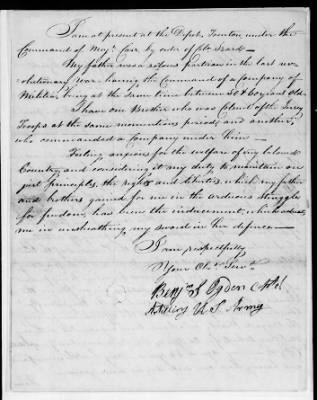 I am at present at the Depot, Trenton under the
Command of Majr. Carr by order of Colo. Izard —
My father was a zealous partisan in the last re-
volutionary War having the Command of a Company of
Militia, being at the same time between 50 & 60 years Old.
I have one Brother who was Colonel of the Jersey
Troops at the same momentous period, and another,
who commanded a Company under him —
Feeling anxious for the welfare of my beloved
Country, and considering it my duty to maintain on
just principles, the rights and liberties, which my father
and brothers gained for me in the arduous struggle
for freedom, has been the inducement, which actuated
me in unsheathing my sword in her defence —
I am respectfully
Your Obt. Servt.
Benjn S Ogden
Artillery U S Army